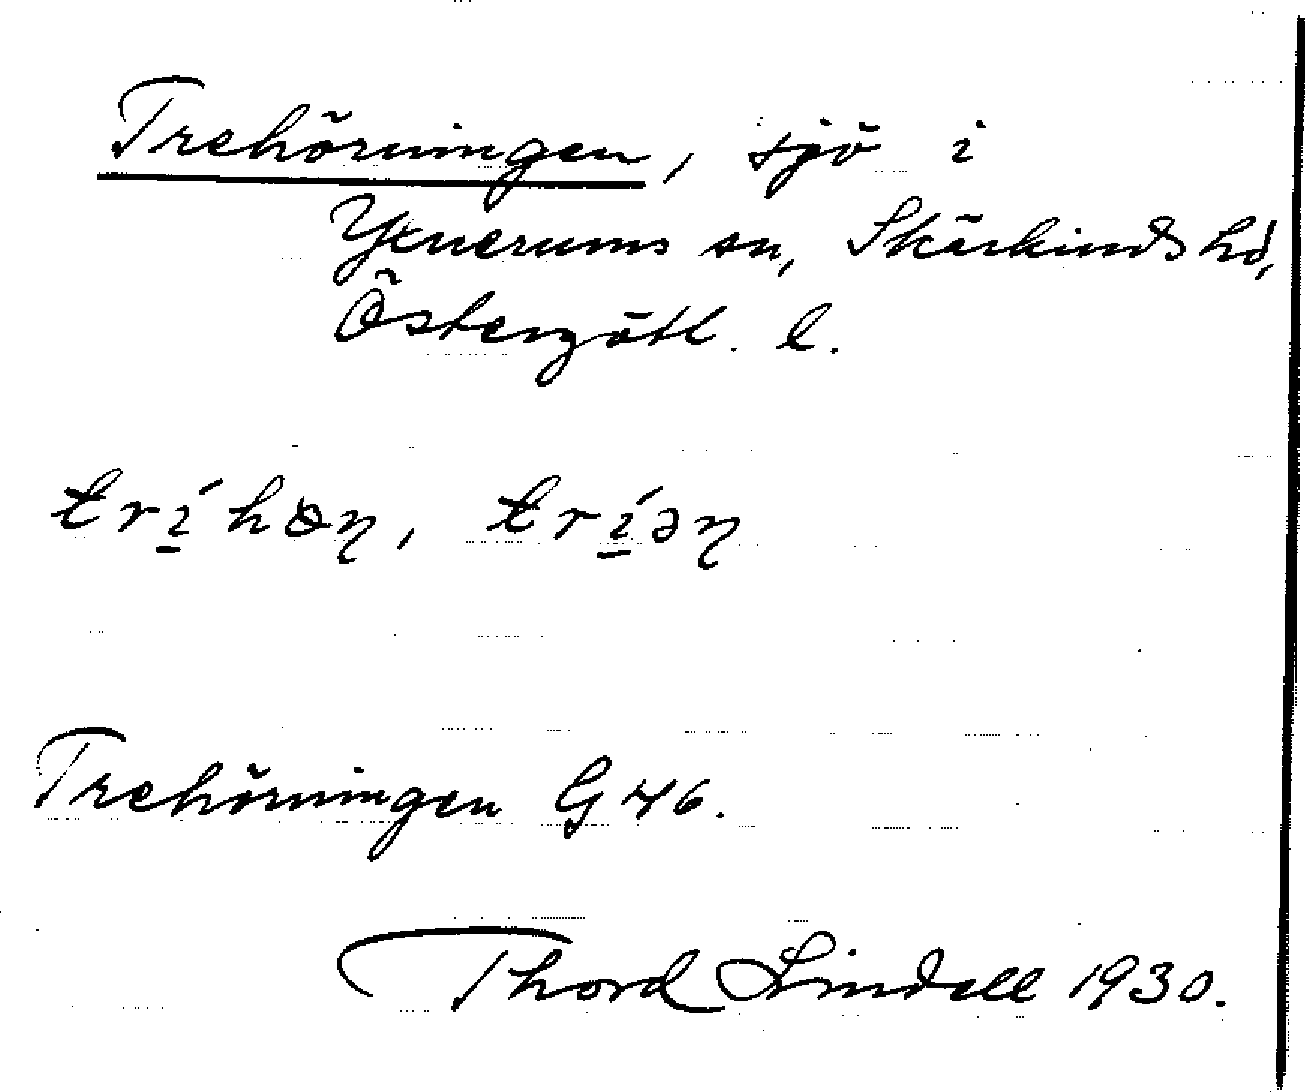 Trehörningen, sjö i
Yxnerums sn, Skärkinds hd,
Östergötl. l.
trí̲həŋ, trí̲əŋ
Trehörningen G 46.
Thord Lindell 1930.